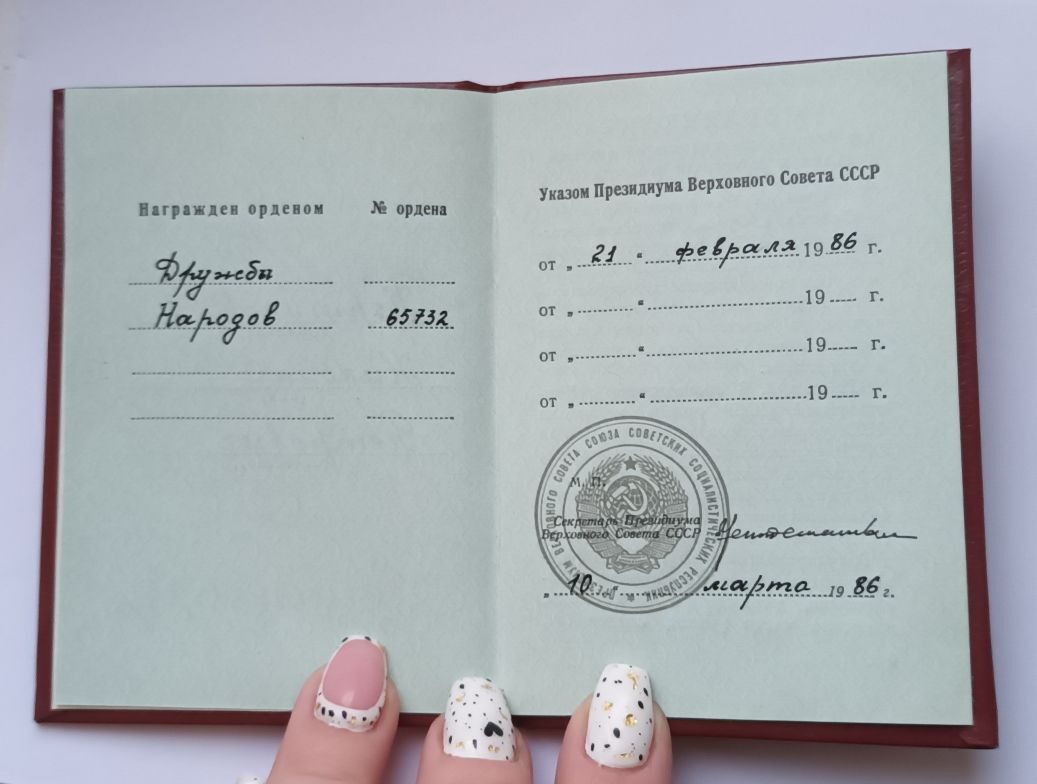 Награжден орденом № ордена
Дружбы
Народов 65732
Указом Президиума Верховного Совета СССР
от „ 21 “ февраля 19 86 г.
от „ “ 19 г.
от „ “ 19 г.
от „ “ 19 г.
ПРЕЗИДИУМ ВЕРХОВНОГО СОВЕТА СОЮЗА СОВЕТСКИХ СОЦИАЛИСТИЧЕСКИХ РЕСПУБЛИК
М. П.
Секретарь Президиума
Верховного Совета СССР
„ 10 “ марта 19 86 г.